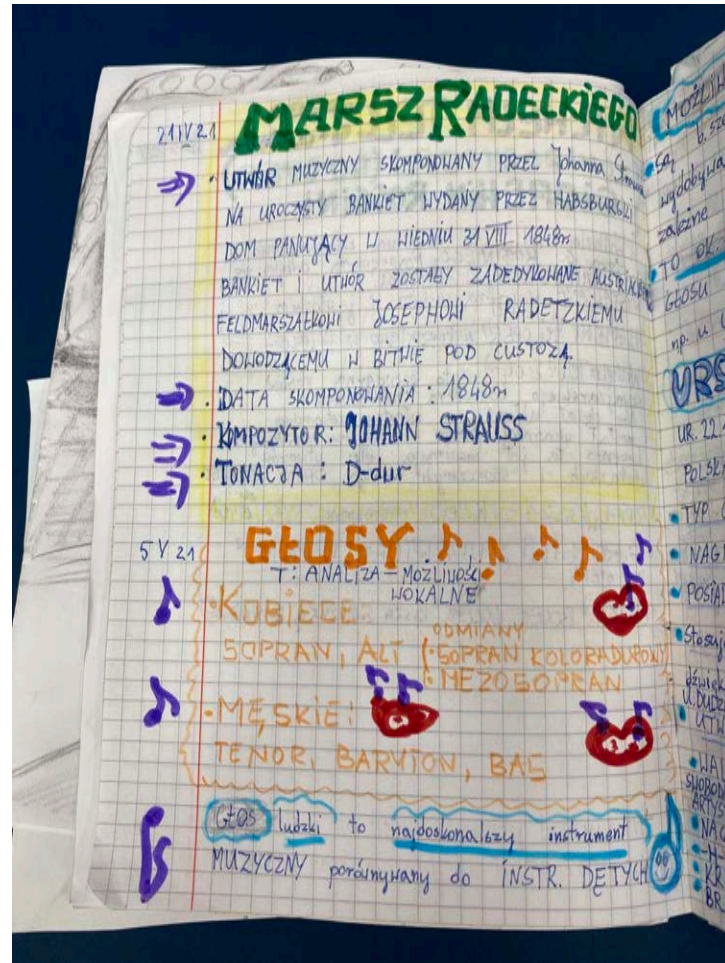 21 IV 21
MARSZ RADECKIEGO
• UTWÓR MUZYCZNY SKOMPONOWANY PRZEZ Johanna
NA UROCZYSTY BANKIET WYDANY PRZEZ HABSBURSKI
DOM PANUJĄCY W WIEDNIU 31 VIII 1848r
BANKIET I UTWÓR ZOSTAŁY ZADEDYKOWANE
FELDMARSZAŁKOWI JOSEPHOWI RADETZKIEMU
DOWODZĄCEMU W BITWIE POD CUSTOZĄ.
• DATA SKOMPONOWANIA : 1848r
• KOMPOZYTOR: JOHANN STRAUSS
• TONACJA : D-dur
5 V 21
GŁOSY
T: ANALIZA – MOŻLIWOŚCI
WOKALNE
• KOBIECE
SOPRAN, ALT
ODMIANY
(• SOPRAN KOLORADUROWY
• MEZOSOPRAN
• MĘSKIE:
TENOR, BARYTON, BAS
GŁOS ludzki to najdoskonalszy instrument
MUZYCZNY porównywany do INSTR. DĘTYCH
SĄ b.
zależne
• TO OK.
GŁOSU
np. u
UR. 22
• TYP